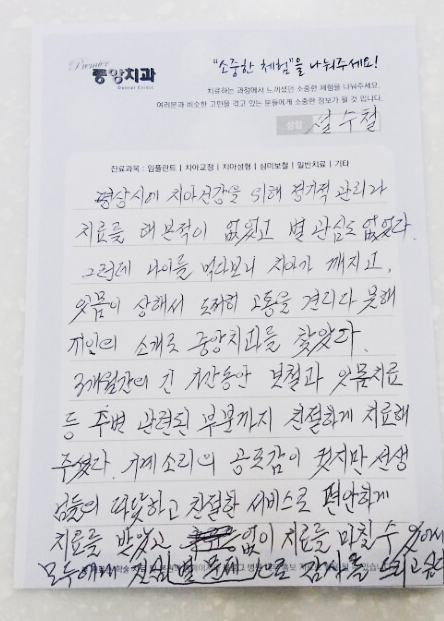 Premiere
중앙치과
Dental Clinic
"소중한 체험"을 나눠주세요!
치료하는 과정에서 느끼셨던 소중한 체험을 나눠주세요.
여러분과 비슷한 고민을 겪고 있는 분들에게 소중한 정보가 될 것 입니다.
성함 설수철
진료과목 : 임플란트 | 치아교정 | 치아성형 | 심미보철 | 일반치료 | 기타
평상시에 치아건강을 위해 정기적 관리나
치료를 해본적이 없었고 별 관심도 없었다.
그런데 나이를 먹다보니 치아가 깨지고,
잇몸이 상해서 도저히 고통을 견디다 못해
지인의 소개로 중앙치과를 찾았다.
3개월간의 긴 시간동안 보철과 잇몸치료
등 주변 관련된 부분까지 친절하게 치료해
주셨다. 기계소리의 공포감이 컸지만 선생
님들의 따뜻하고 친절한 서비스로 편안하게
치료를 받았고 없이 치료를 마칠 수 있어서
모두에게 진심 으로 감사를 드리고 싶다